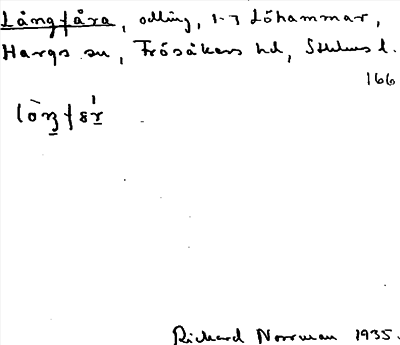 Långfåra, odling, 1-7 Löhammar,
Hargs sn, Frösåkers hd, Sthlms l.
166
Richard Norrman 1935.